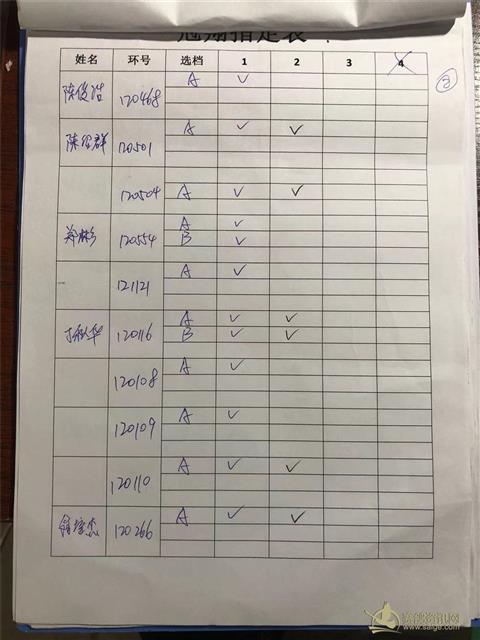 冠翔指定表
姓名 环号 选档 1 2 3 4
②
陈俊浩 120468 A ✓
120501 A ✓ ✓
120504 A ✓ ✓
郑彬 120554 A ✓
B ✓
121121 A ✓
120116 A ✓ ✓
B ✓ ✓
120108 A ✓
120109 A ✓
120110 A ✓ ✓
120266 A ✓ ✓
www.saige.com